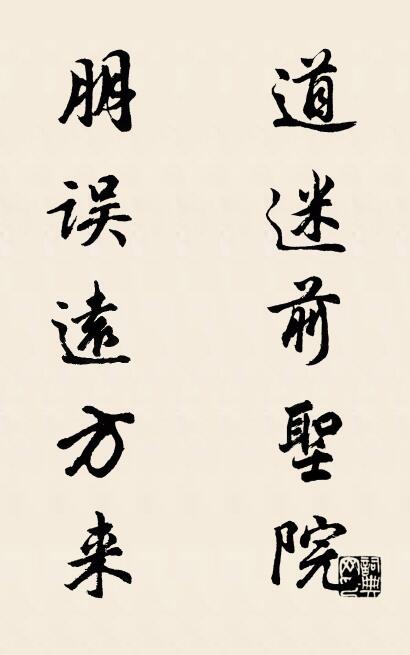 道迷前聖院
朋誤遠方来
詞典網